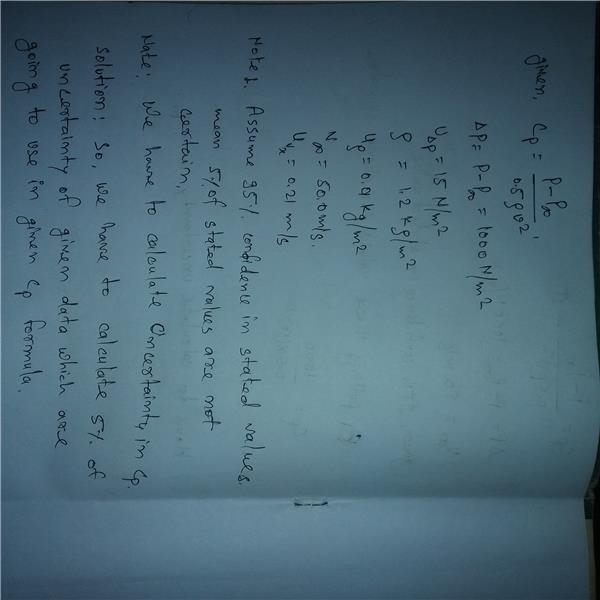 given, Cp = p-p∞ / 0.5ρv²,
Δp = p-p∞ = 1000 N/m²
UΔp = 15 N/m²
ρ = 1.2 kg/m²
Uρ = 0.01 kg/m²
V∞ = 50.0 m/s.
= 0.21 m/s
Note 1. Assume 95% confidence in stated values.
mean 5% of stated values are not
certain.
Note: We have to calculate Uncertainty in Cp.
Solution: So, we have to calculate 5% of
uncertainty of given data which are
going to use in given Cp formula.